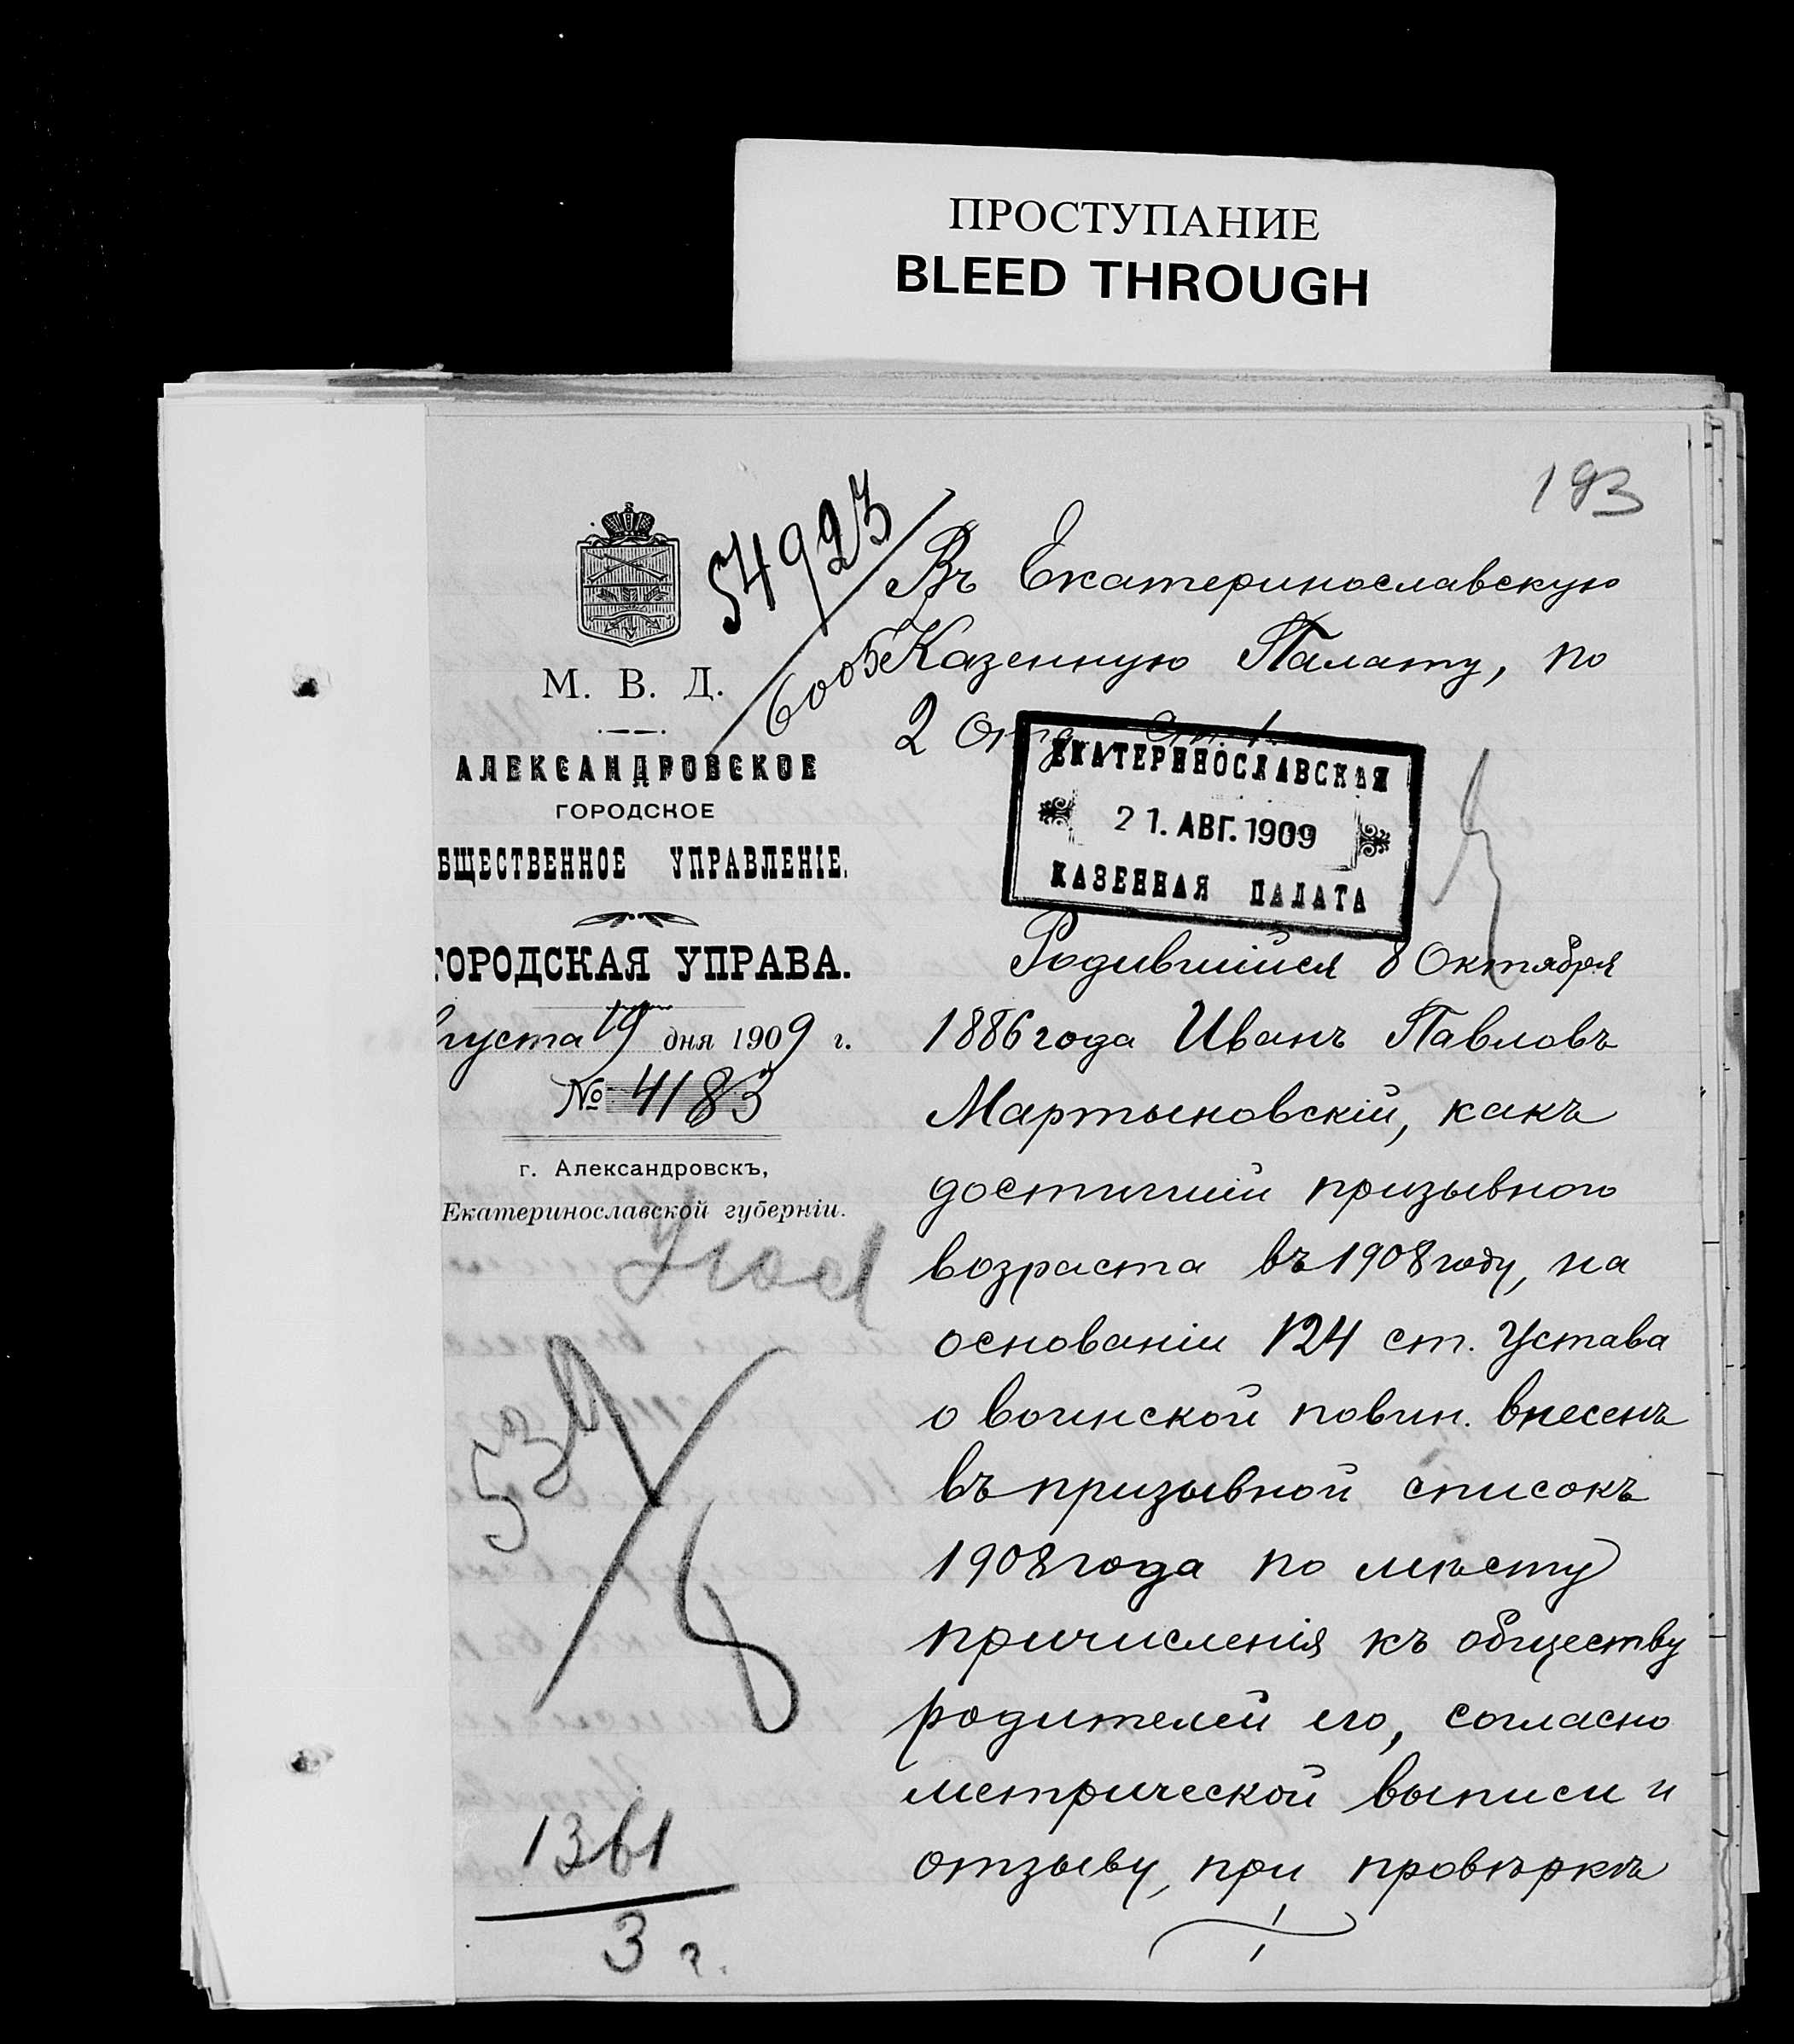 ПРОСТУПАНИЕ
BLEED THROUGH
193
54923
6005
М. В. Д.
АЛЕКСАНДРОВСКОЕ
ГОРОДСКОЕ
БЩЕСТВЕННОЕ УПРАВЛЕНІЕ.
ГОРОДСКАЯ УПРАВА.
вгуста 19 дня 1909 г.
№ 4183
г. Александровскъ,
Екатеринославской губерніи.
539
8
1361
3 г.
Въ Екатеринославскую
Казенную Палату, по
2 Отд.
ЕКАТЕРИНОСЛАВСКАЯ
21. АВГ. 1909
КАЗЕННАЯ ПАЛАТА
Родившійся 8 Октября
1886 года Иванъ Павловъ
Мартыновскій, какъ
достигшій призывного
возраста въ 1908 году, на
основаніи 124 ст. Устава
о воинской повин. внесенъ
въ призывной списокъ
1908 года по мѣсту
причисленія къ обществу
родителей его, согласно
метрической выписи и
отзыву, при провѣркѣ